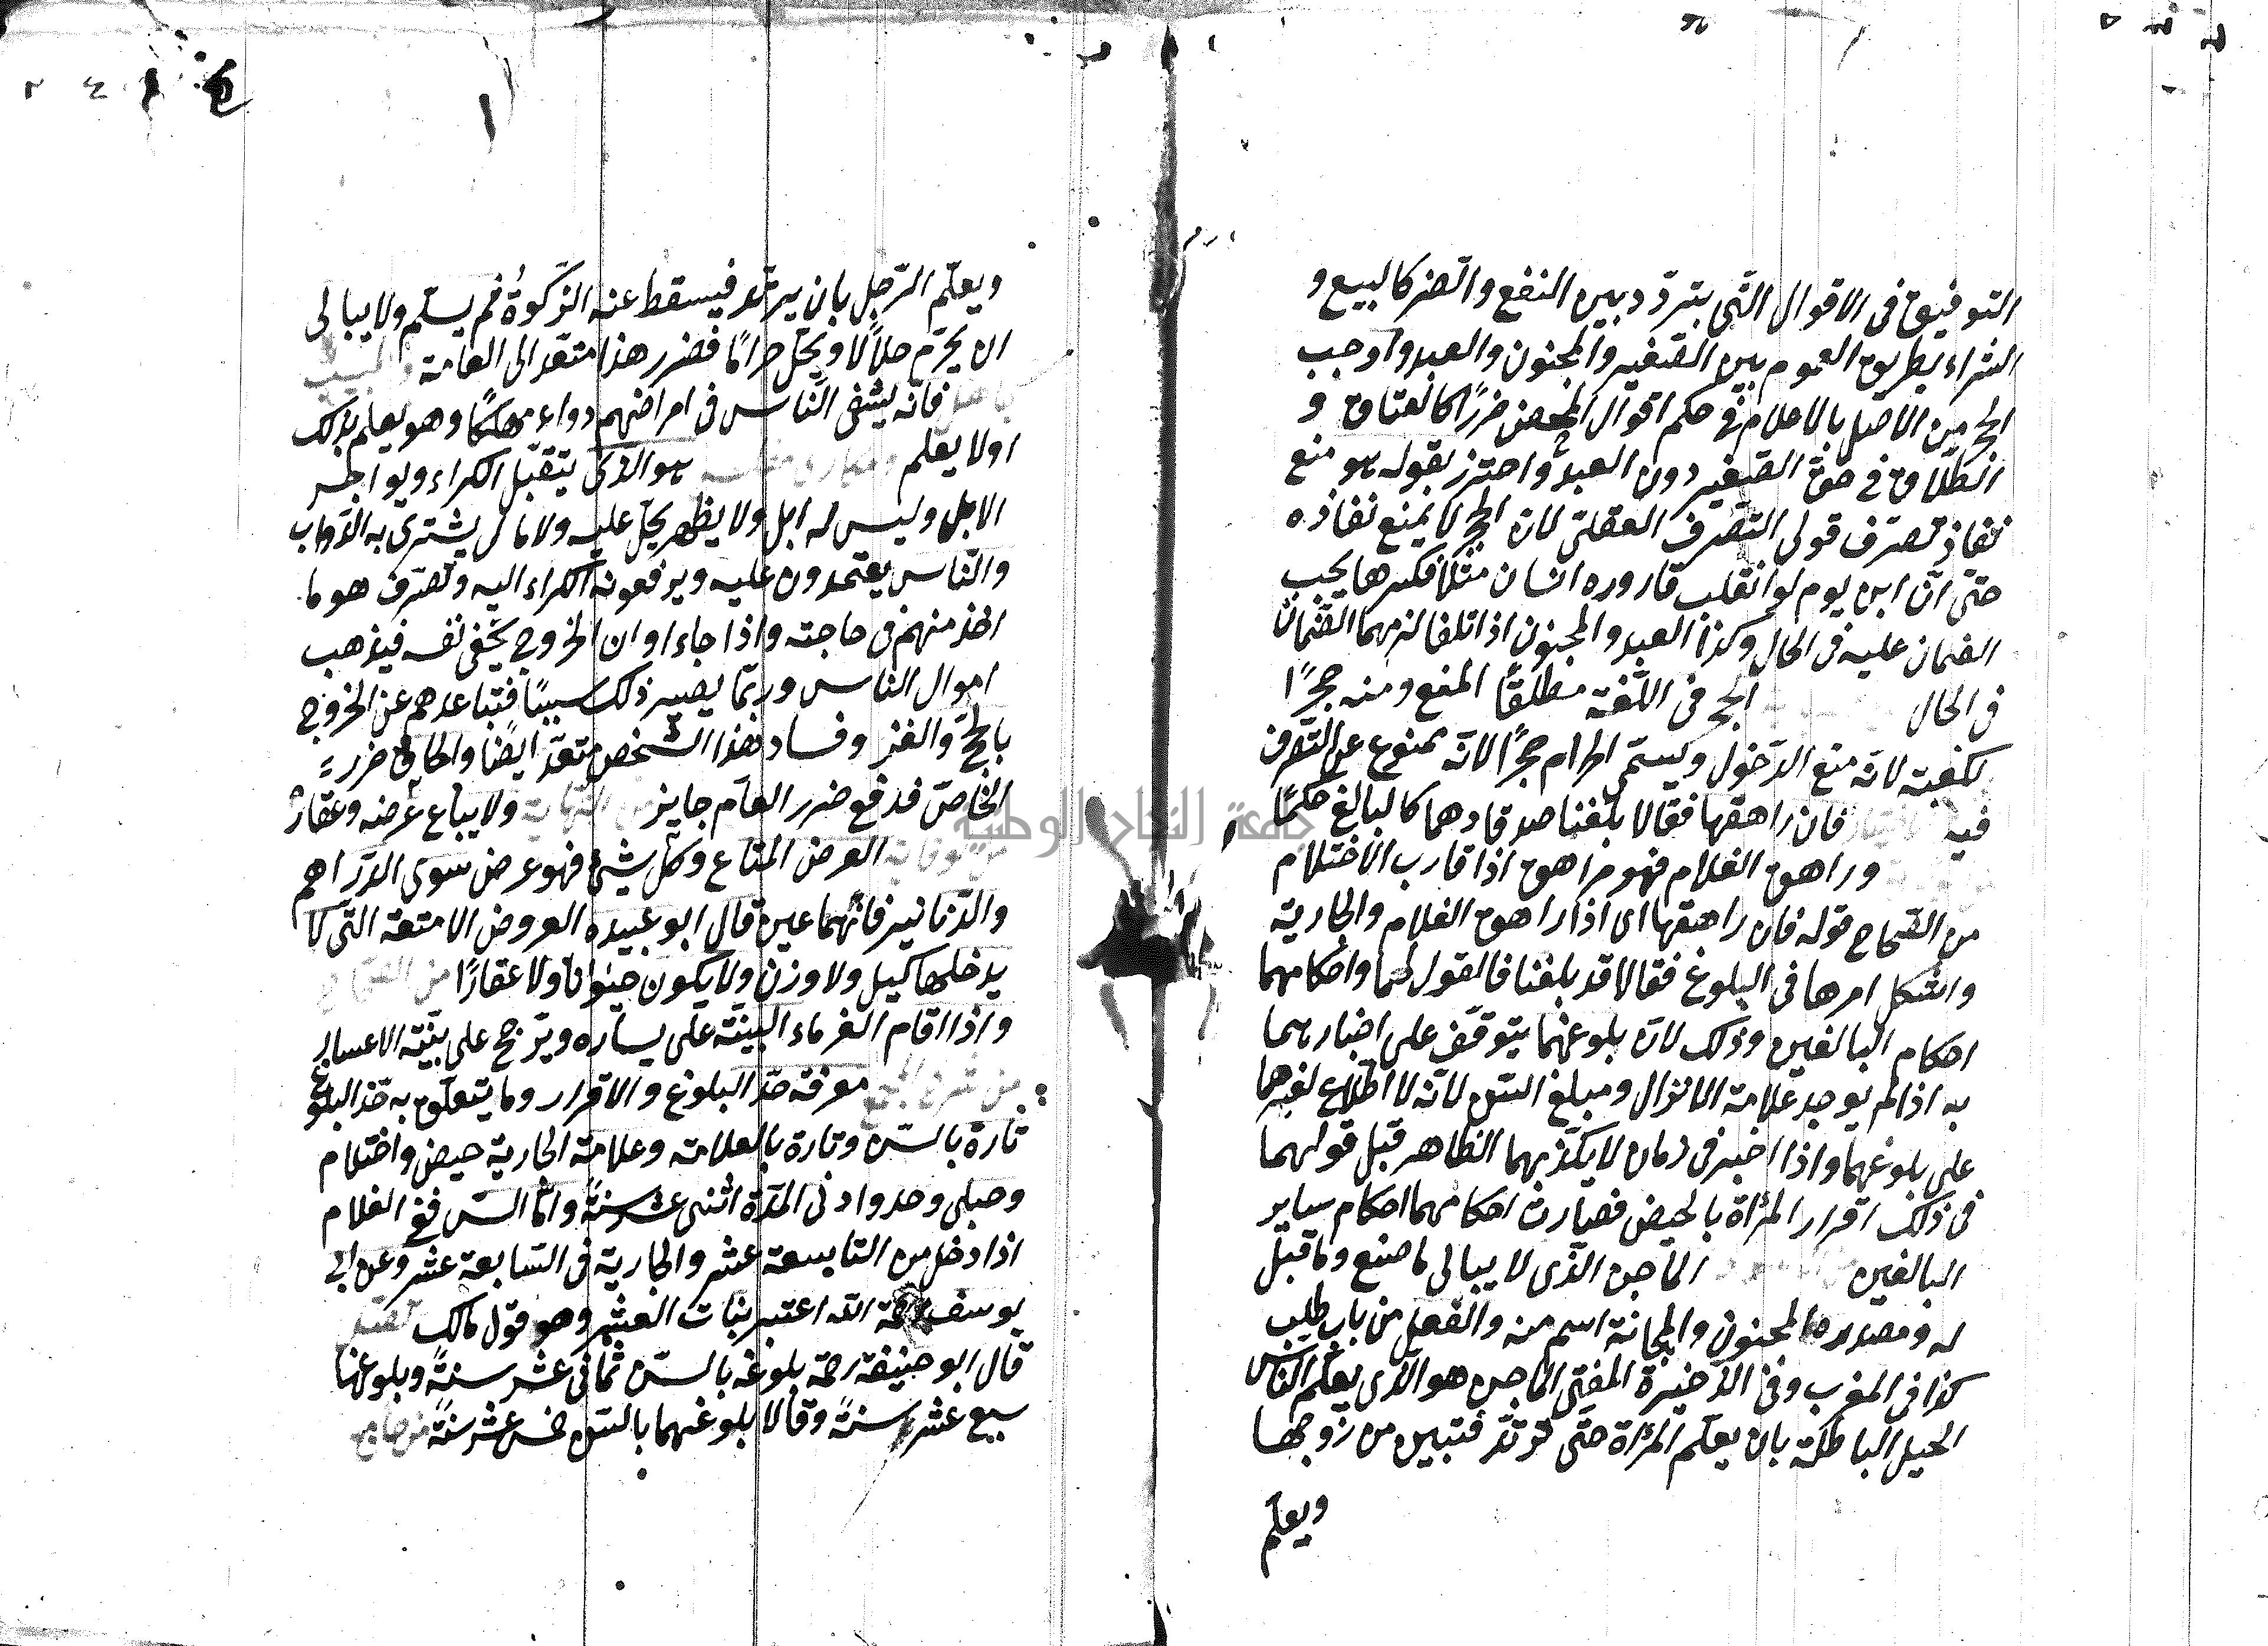 التوفيق فى الاقوال التى يتردد بين النفع والضر كالبيع و
الشراء بطريق العموم بين الصغير والمجنون والعبد واوجب
الحجر من الاصل بالاعلام فى حكم اقوال المحض ضررًا كالعتاق و
الطلاق فى حق الصغير دون العبد واحترز بقوله هو منع
نفاذ تصرف قولى التصرف العقلى لان الحجر لا يمنع نفاذه
حتى ان ابن يوم لو انقلب قاروره انسان مثلًا فكسرها يجب
الضمان عليه فى الحال وكذا العبد والمجنون اذا تلفا لزمهما الضمان
فى الحال الحجر فى اللغة مطلقًا المنع ومنه حجرًا
لكعبة لانه منع الدخول ويسمى الحرام حجرًا لانه ممنوع عن التصرف
فيه فان راهقها فقالا بلغنا صدقا وهما كالبالغ حكمًا
وراهق الغلام فهو مراهق اذا قارب الاحتلام
من الصحاح قوله فان راهقها اى اذا راهق الغلام والجارية
واشكل امرها فى البلوغ فقالا قد بلغنا فالقول لهما واحكامهما
احكام البالغين وذلك لان بلوغهما يتوقف على اخبارهما
به اذا لم يوجد علامة الانزال ومبلغ السن لانه لا اطلاع لغيرهما
على بلوغهما واذا اخبر فى زمان لا يكذبهما الظاهر قبل قولهما
فى ذلك اقرار المرأة بالحيض فصارت احكامهما احكام ساير
البالغين الماجن الذى لا يبالى ما صنع وما قيل
له ومصدره المجنون والمجانة اسم منه والفعل من باب طلب
كذا فى المغرب وفى الذخيرة المفتى الماجن هو الذى يعلم الناس
الحيل الباطلة بان يعلم المرأة حتى ترتد فتبين من زوجها
ويعلم
ويعلم الرجل بان يرتد فيسقط عنه الزكوة ثم يسلم ولا يبالى
ان يحرم حلالًا او يحل حرامًا فضرر هذا متعد الى العامة
فانه يشفى الناس فى امراضهم دواء مهلكًا وهو يعلم بذلك
اولا يعلم هو الذى يتقبل الكراء ويواجر
الابل وليس له ابل ولا يظهر يحل عليه ولا مال يشترى به الدواب
والناس يعتمدون عليه ويرفعون الكراء اليه وتصرف هو ما
اخذ منهم فى حاجته واذا جاء اوان الخروج يخفى نفسه فيذهب
اموال الناس وربما يصير ذلك سببًا فتباعدهم عن الخروج
بالحج والغز وفساد هذا الشخص متعد ايضًا والحاقى ضرر
الخاص فدفع ضرر العام جايز من النهاية ولا يباع عرضه وعقاره
العرض المتاع وكل شئ فهو عرض سوى الدراهم
والدنانير فانهما عين قال ابو عبيده العروض الامتعة التى لا
يدخلها كيل ولا وزن ولا يكون حيوانًا ولا عقارًا
واذا اقام الغرماء البينة على يساره ويرجح على بينة الاعسار
معرفة حد البلوغ والاقرار وما يتعلق به حد البلوغ
تارة بالسن وتارة بالعلامة وعلامة الجارية حيض واحتلام
وحبلى وحدوا دنى المدة اثنى عشر سنةً واما السن ففى الغلام
اذا دخل من التاسعة عشر والجارية فى السابعة عشر وعن ابى
يوسف رحمة الله اعتبر بنبات العشر وهو قول مالك
قال ابو حنيفة رحمه بلوغه بالسن ثمانى عشر سنةً وبلوغها
سبع عشر سنةً وقالا بلوغهما بالسن خمس عشر سنةً
جامعة النجاح الوطنية